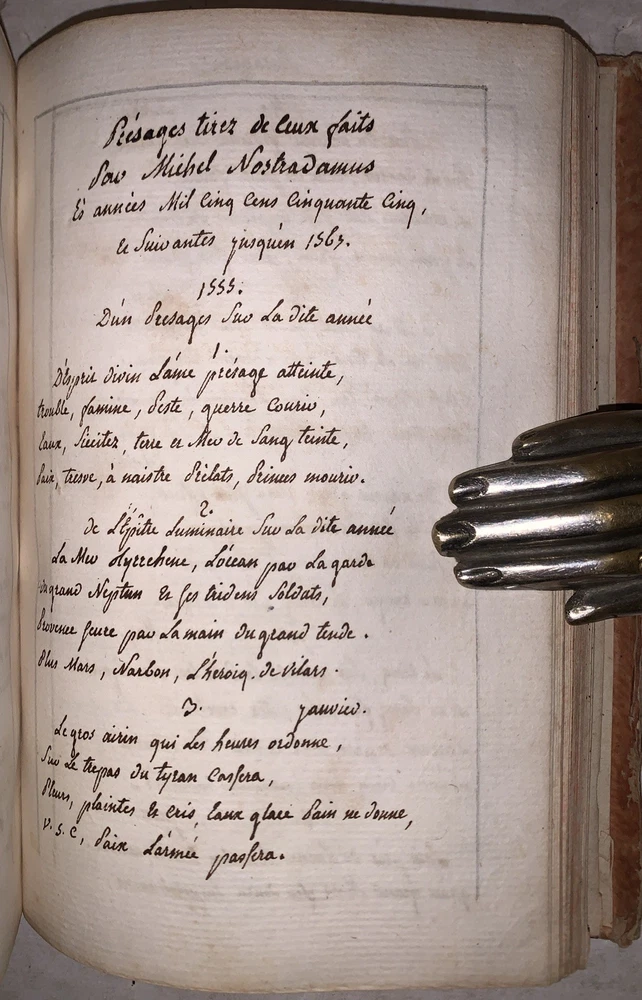 Présages tirez de Ceux faits
Par Michel Nostradamus
És années Mil Cinq Cens Cinquante Cinq,
Et Suivantes jusqu'en 1567.
1555.
D'un Présages Sur La dite année
1.
D'Esprit divin L'áme présage atteinte,
trouble, famine, Peste, guerre Courir,
Eaux, Siccitez, terre et Mer de Sang teinte,
Paix, tresve, à naistre Prélats, Princes mourir.
2.
de L'Epître Luminaire Sur La dite année
La Mer Tyrrehene, L'océan par La garde
Du grand Neptun Et Ses tridens Soldats,
Provence Seure par La main du grand tende.
Plus Mars, Narbon, L'héroiq. de Vilars.
3. Janvier.
Le gros airin qui Les heures ordonne,
Sur Le trepas du tyran Cassera,
Pleurs, plaintes Et Cris, Eaux glace Pain ne donne,
V. S. C, Paix L'armée passera.